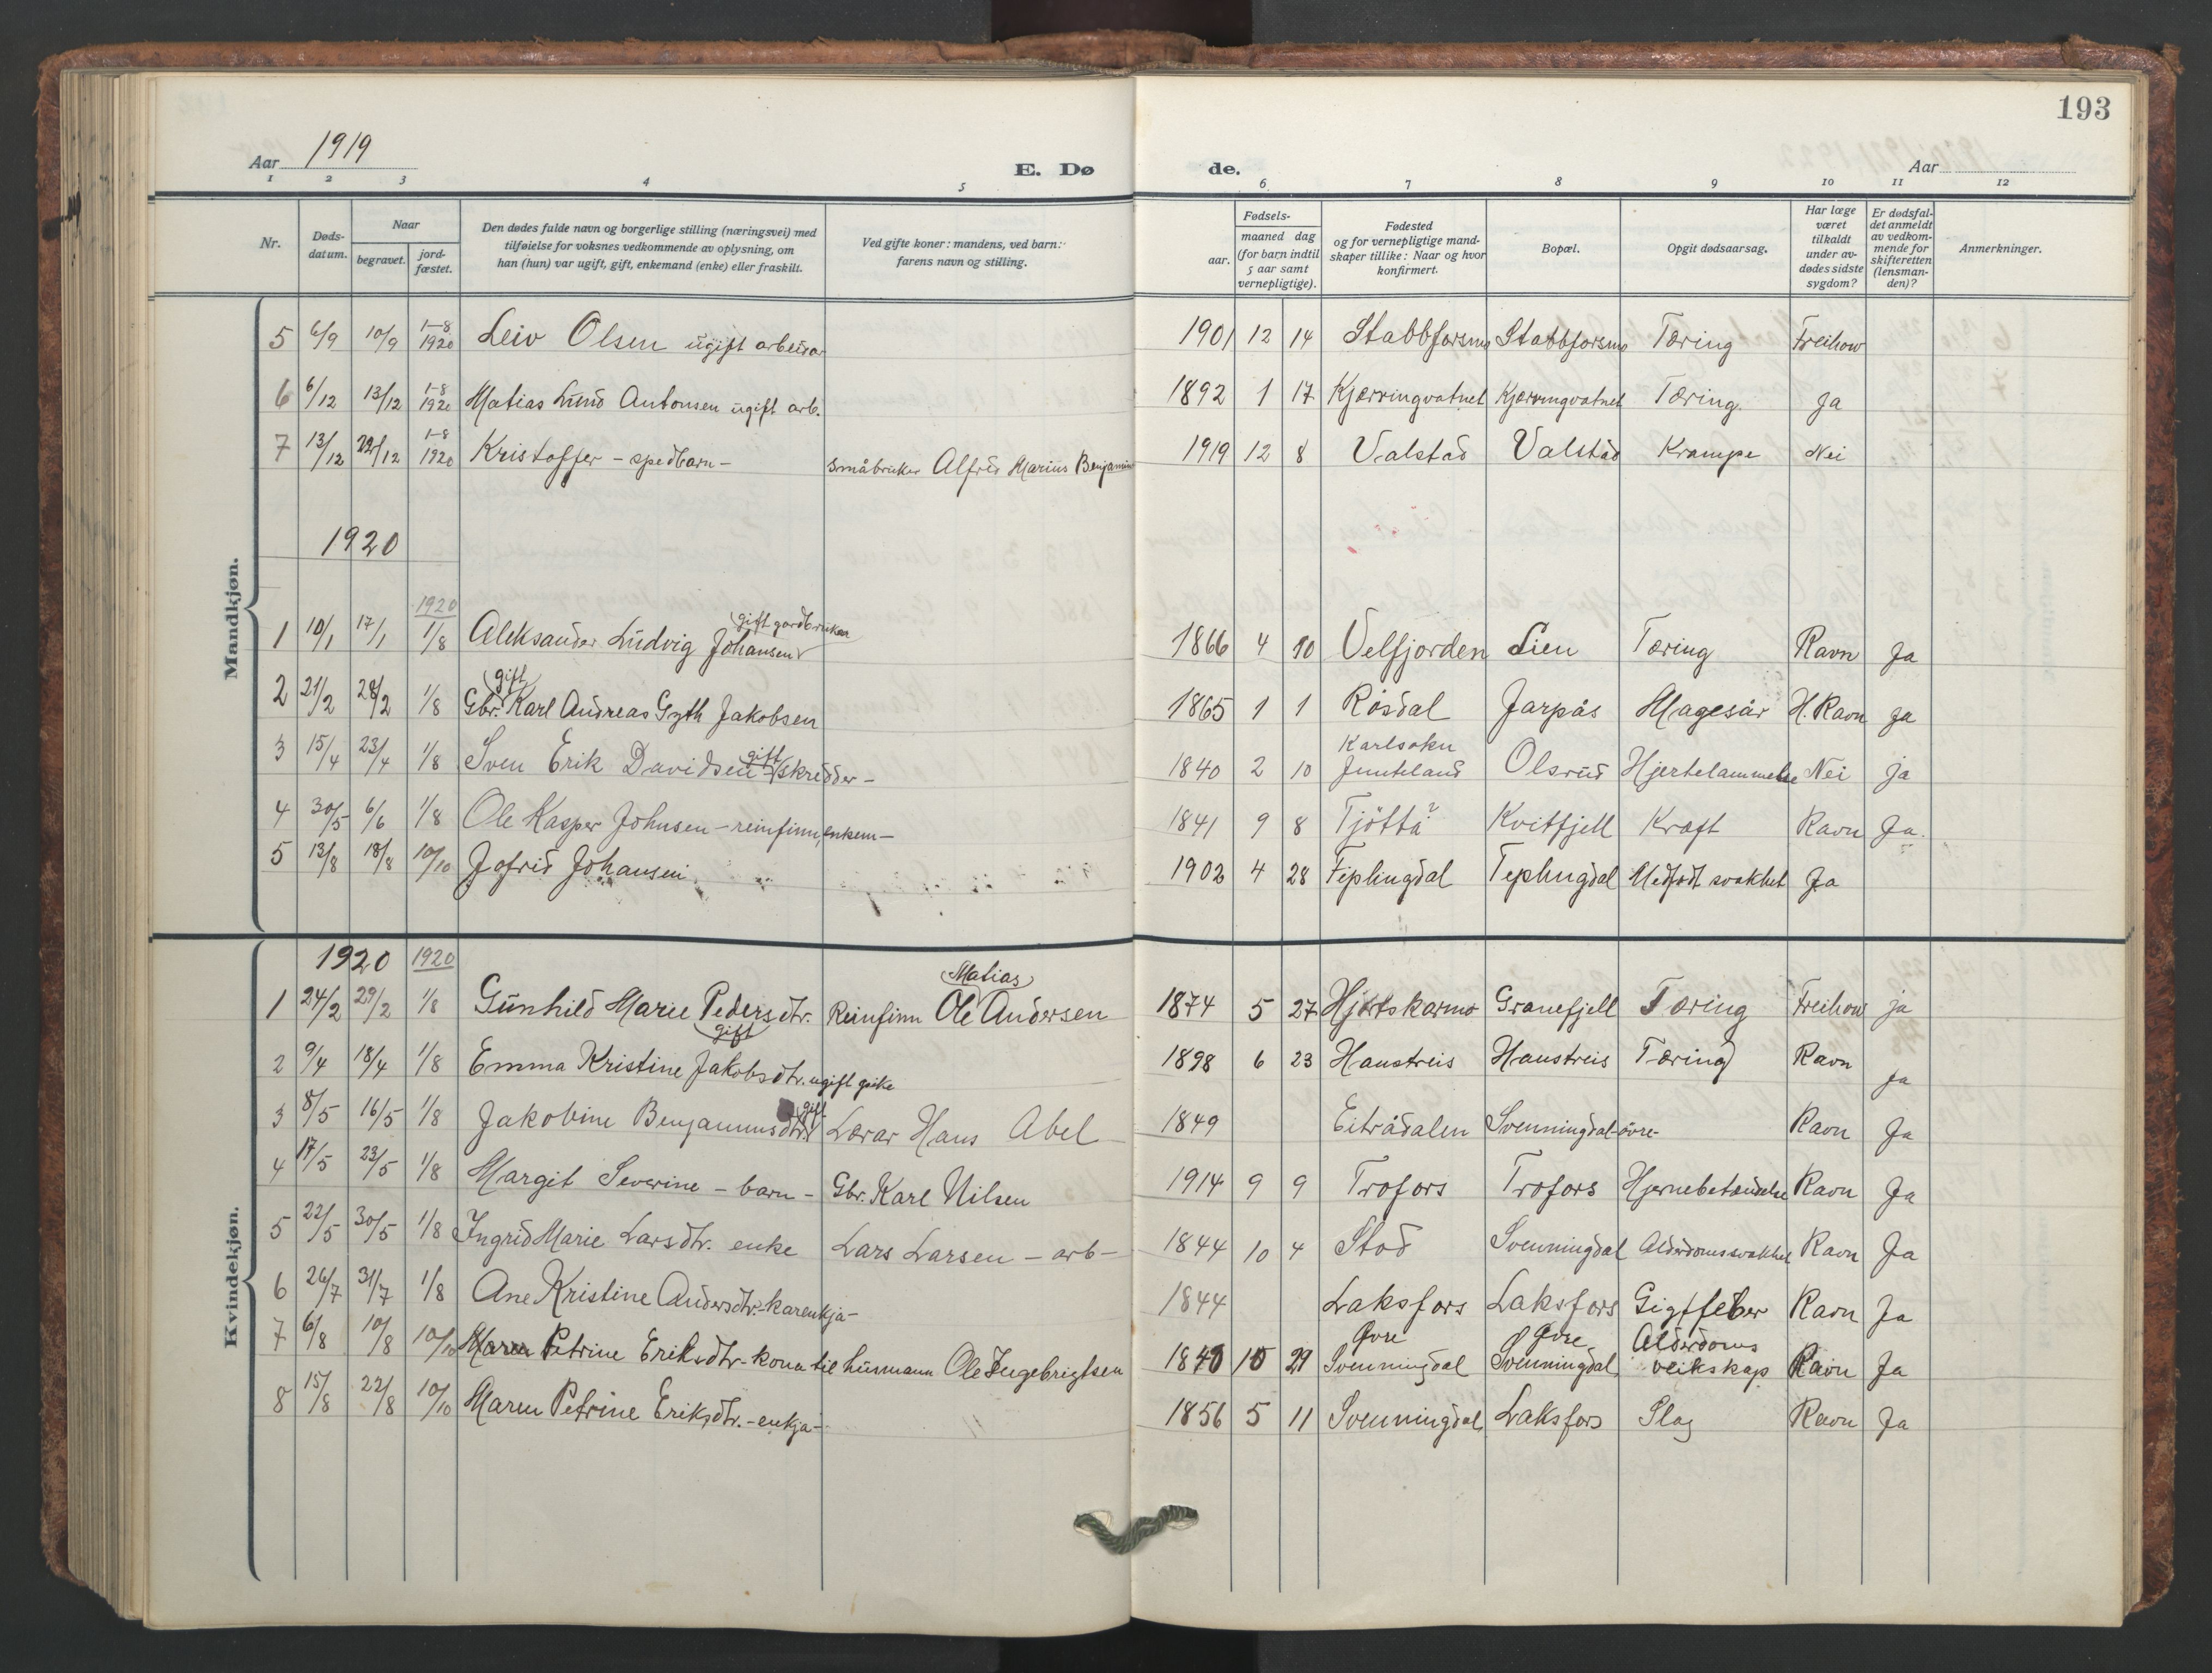 193
Aar 1919
E. Dø
de.
Aar
1 2 3 4 5 6 7 8 9 10 11 12
Nr.
Døds-
datum.
Naar
begravet.
jord-
fæstet.
Den dødes fulde navn og borgerlige stilling (næringsvei) med
tilføielse for voksnes vedkommende av oplysning, om
han (hun) var ugift, gift, enkemand (enke) eller fraskilt.
Ved gifte koner: mandens, ved barn:
farens navn og stilling.
Fødsels-
aar.
maaned dag
(for barn indtil
5 aar samt
vernepligtige).
Fødested
og for vernepligtige mand-
skaper tillike: Naar og hvor
konfirmert.
Bopæl.
Opgit dødsaarsag.
Har læge
været
tilkaldt
under av-
dødes sidste
sygdom?
Er dødsfal-
det anmeldt
av vedkom-
mende for
skifteretten
(lensman-
den)?
Anmerkninger.
Mandkjøn.
5 6/9 10/9 1-8 1920 Leiv Olsen ugift arbeidar 1901 12 14 Stabbforsmo Stabbforsmo Tæring Freihow
6 6/12 13/12 1-8 1920 Matias Lund Antonsen ugift arb. 1892 1 17 Kjærringvatnet Kjærringvatnet Tæring. Ja
7 13/12 22/12 1-8 1920 Kristoffer - spedbarn - Småbruker Alfred Marius Benjamins 1919 12 8 Valstad Valstad Krampe Nei
1920
1920
1 10/1 17/1 1/8 Aleksander Ludvig Johansen gift gardbruker 1866 4 10 Velfjorden Lien Tæring Ravn Ja
2 21/2 28/2 1/8 Gbr. gift Karl Andreas Gyth Jakobsen 1865 1 1 Røsdal Jarpås Magesår H. Ravn Ja
3 15/4 23/4 1/8 Sven Erik Davidsen gift skredder - 1840 2 10 Karlsoku Jemteland Olsrud Hjertelammelse Nei ja
4 30/5 6/6 1/8 Ole Kasper Johnsen - reinfinn, enkem - 1841 9 8 Tjötta? Kvitfjell Kræft Ravn Ja.
5 13/8 18/8 10/10 Jofrid Johansen 1902 4 28 Fiplingdal Fiplingdal Medfødt svakhet Ja
Kvindekjøn.
1920 1920
1 24/2 29/2 1/8 Gunhild Marie Pedersdtr. gift Reinfinn Ole Matias Andersen 1874 5 27 Hjortskarmo Granefjell Tæring Freihow ja
2 9/4 18/4 1/8 Emma Kristine Jakobsdtr. ugift geike 1898 6 23 Haustreis Haustreis Tæring Ravn Ja
3 8/5 16/5 1/8 Jakobine Benjaminsdtr. gift Lærar Hans Abel 1849 Eiterådalen Svenningdal-övre- Ravn Ja
4 17/5 23/5 1/8 Margit Severine - barn - Gbr. Karl Nilsen 1914 9 9 Trofors Trofors Hjernebetændelse Ravn Ja
5 22/5 30/5 1/8 Ingrid Marie Larsdtr. enke Lars Larsen - arb - 1844 10 4 Stod Svenningdal Alderdomssvakhet Ravn Ja
6 26/7 31/7 1/8 Ane Kristine Andersdtr. - karenkja - 1844 Laksfors Laksfors Gigtfeber Ravn Ja
7 6/8 10/8 10/10 Maren Petrine Eriksdtr - kona til husmann Ole Ingebrigtsen 1840 10 29 Øvre Svenningdal Øvre Svenningdal Alderdoms veikskap Ravn Ja
8 15/8 22/8 10/10 Maren Petrine Eriksdtr. - enkja - 1856 5 11 Svenningdal Laksfors Slag Ravn Ja